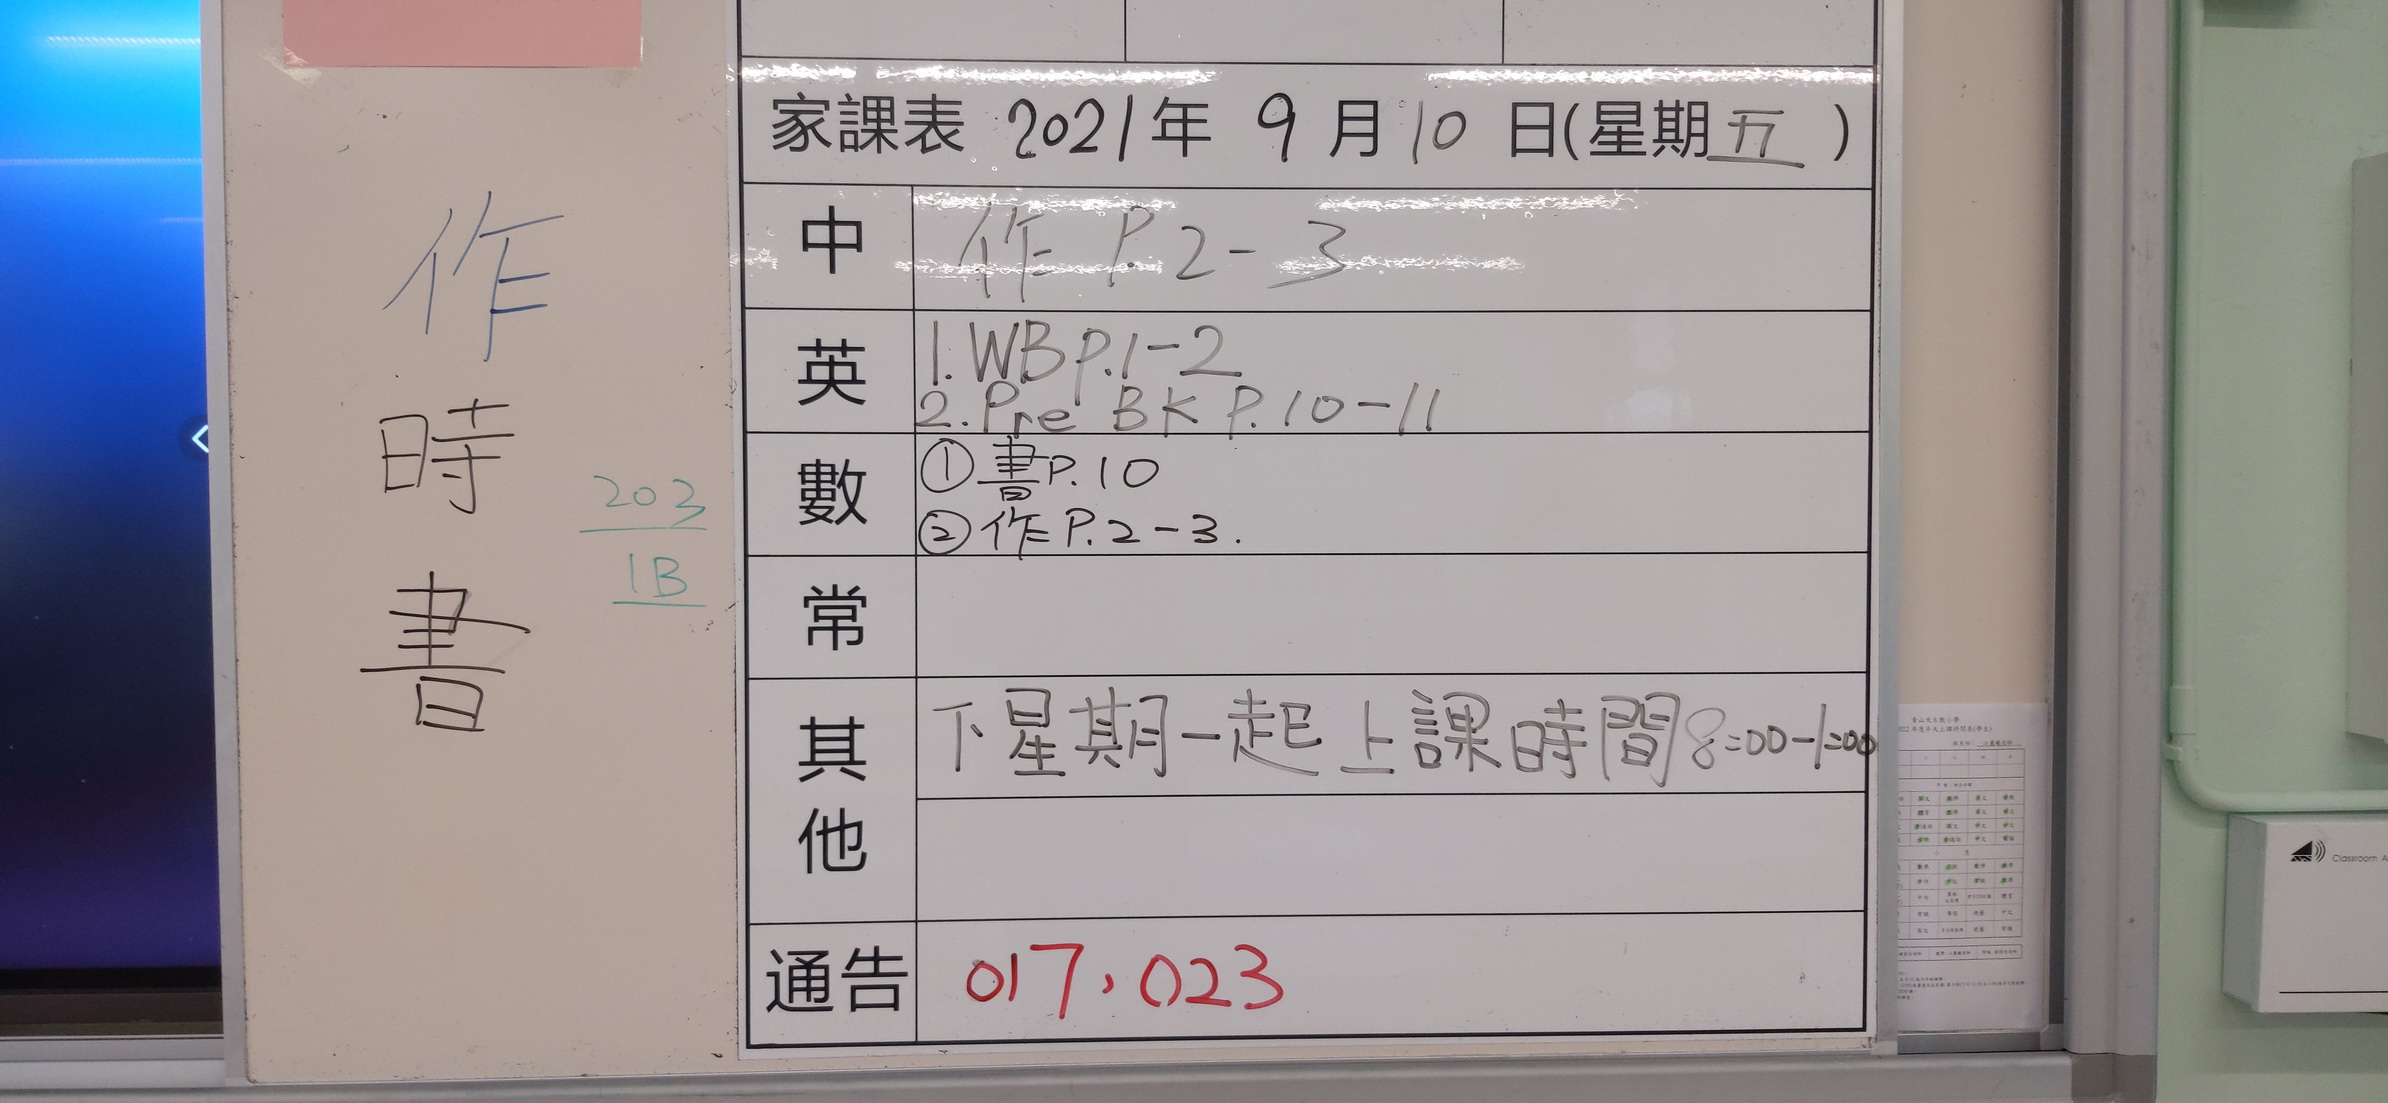 作
時
書
203
1B
家課表 2021年 9月10日(星期五)
中 作 P.2-3
英 1.WB P.1-2
2.Pre BK P.10-11
數 ①書P.10
②作P.2-3.
常
其他 下星期一起上課時間8:00-1:00
通告 017,023
Classroom A